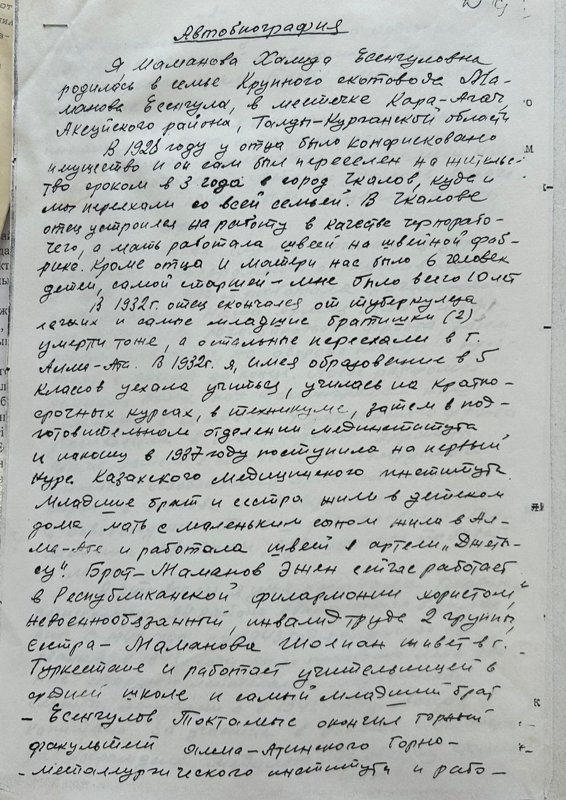 Автобиография
Я Маманова Халида Есенгуловна
родилась в семье крупного скотовода Ма-
манова Есенгула, в местечке Кара-Агач,
Аксуйского района, Талды-Курганской области
В 1928 году у отца было конфисковано
имущество и он сам был переселен на жительс-
тво сроком в 3 года в город Чкалов, куда и
мы переехали со всей семьей. В Чкалове
отец устроился на работу в качестве чернорабо-
чего, а мать работала швеей на швейной фаб-
рике. Кроме отца и матери нас было 6 человек
детей, самой старшей – мне было всего 10 лет
В 1932 г. отец скончался от туберкулеза
легких и самые младшие братишки (2)
умерли тоже, а остальные переехали в г.
Алма-Ата. В 1932 г. я, имея образование в 5
классов уехала учиться, училась на кратко-
срочных курсах, в техникуме, затем в под-
готовительном отделении мединститута
и наконец в 1937 году поступила на первый
курс Казахского медицинского института
Младшие брат и сестра жили в детском
доме, мать с маленьким сыном жила в Ал-
ма-Ате и работала швеей в артели „Джеты-
су". Брат – Маманов Эжен сейчас работает
в Республиканской филармонии хористом,
невоеннообязанный, инвалид труда 2 группы,
сестра – Маманова Шолпан живет в г.
Туркестане и работает учительницей в
средней школе и самый младший брат
– Есенгулов Токтамыс окончил горный
факультет Алма-Атинского Горно-
-металлургического института и рабо-